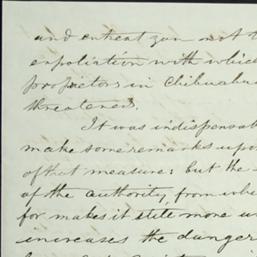 and entreat you not t
expoliation with which
proprietors in Chihuahua
threatened.
It was indispensab
make some remarks upon
of that measure: but the
of the authority, from whe
for makes it still more
increases the danger